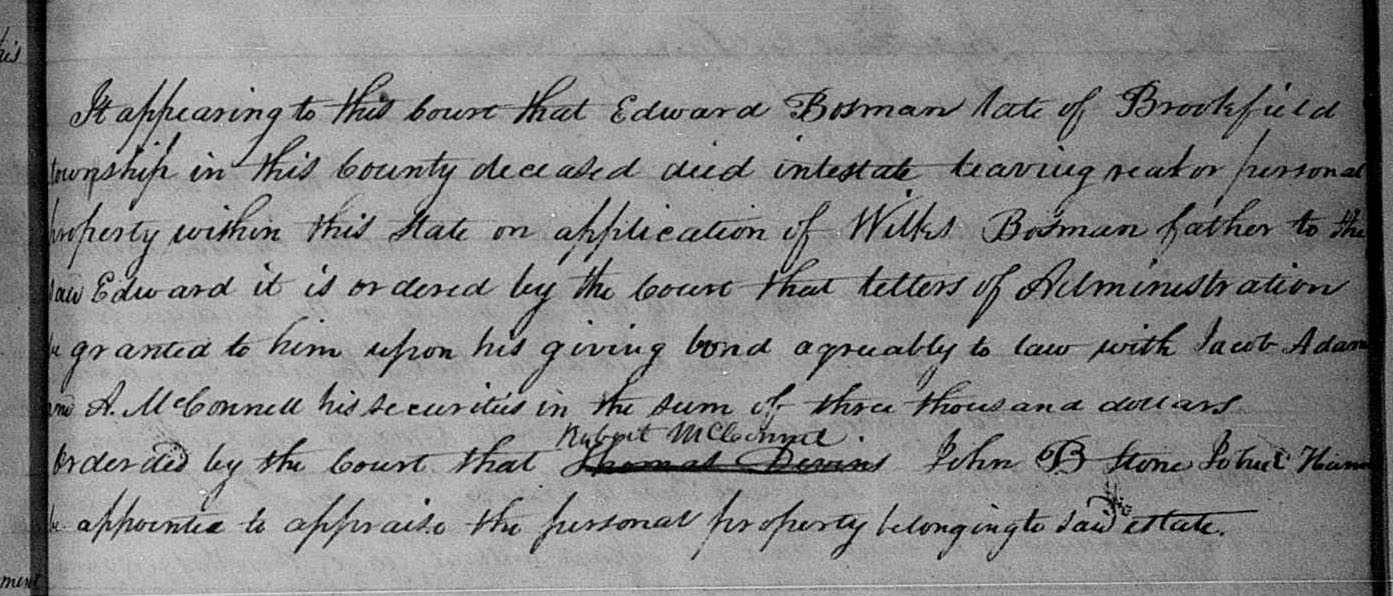 his
It appearing to this Court that Edward Bosman late of Brookfield
township in this County deceased died intestate leaving real or personal
property within this State on application of Wilks Bosman father to the
said Edward it is ordered by the Court that letters of Administration
be granted to him upon his giving bond agreeably to law with Jacob Adam
and A. McConnell his securities in the sum of three thousand dollars
Robert McConnel
Ordered by the Court that Thomas Devins John B Stone
be appointed to appraise the personal property belonging to said estate.
ment